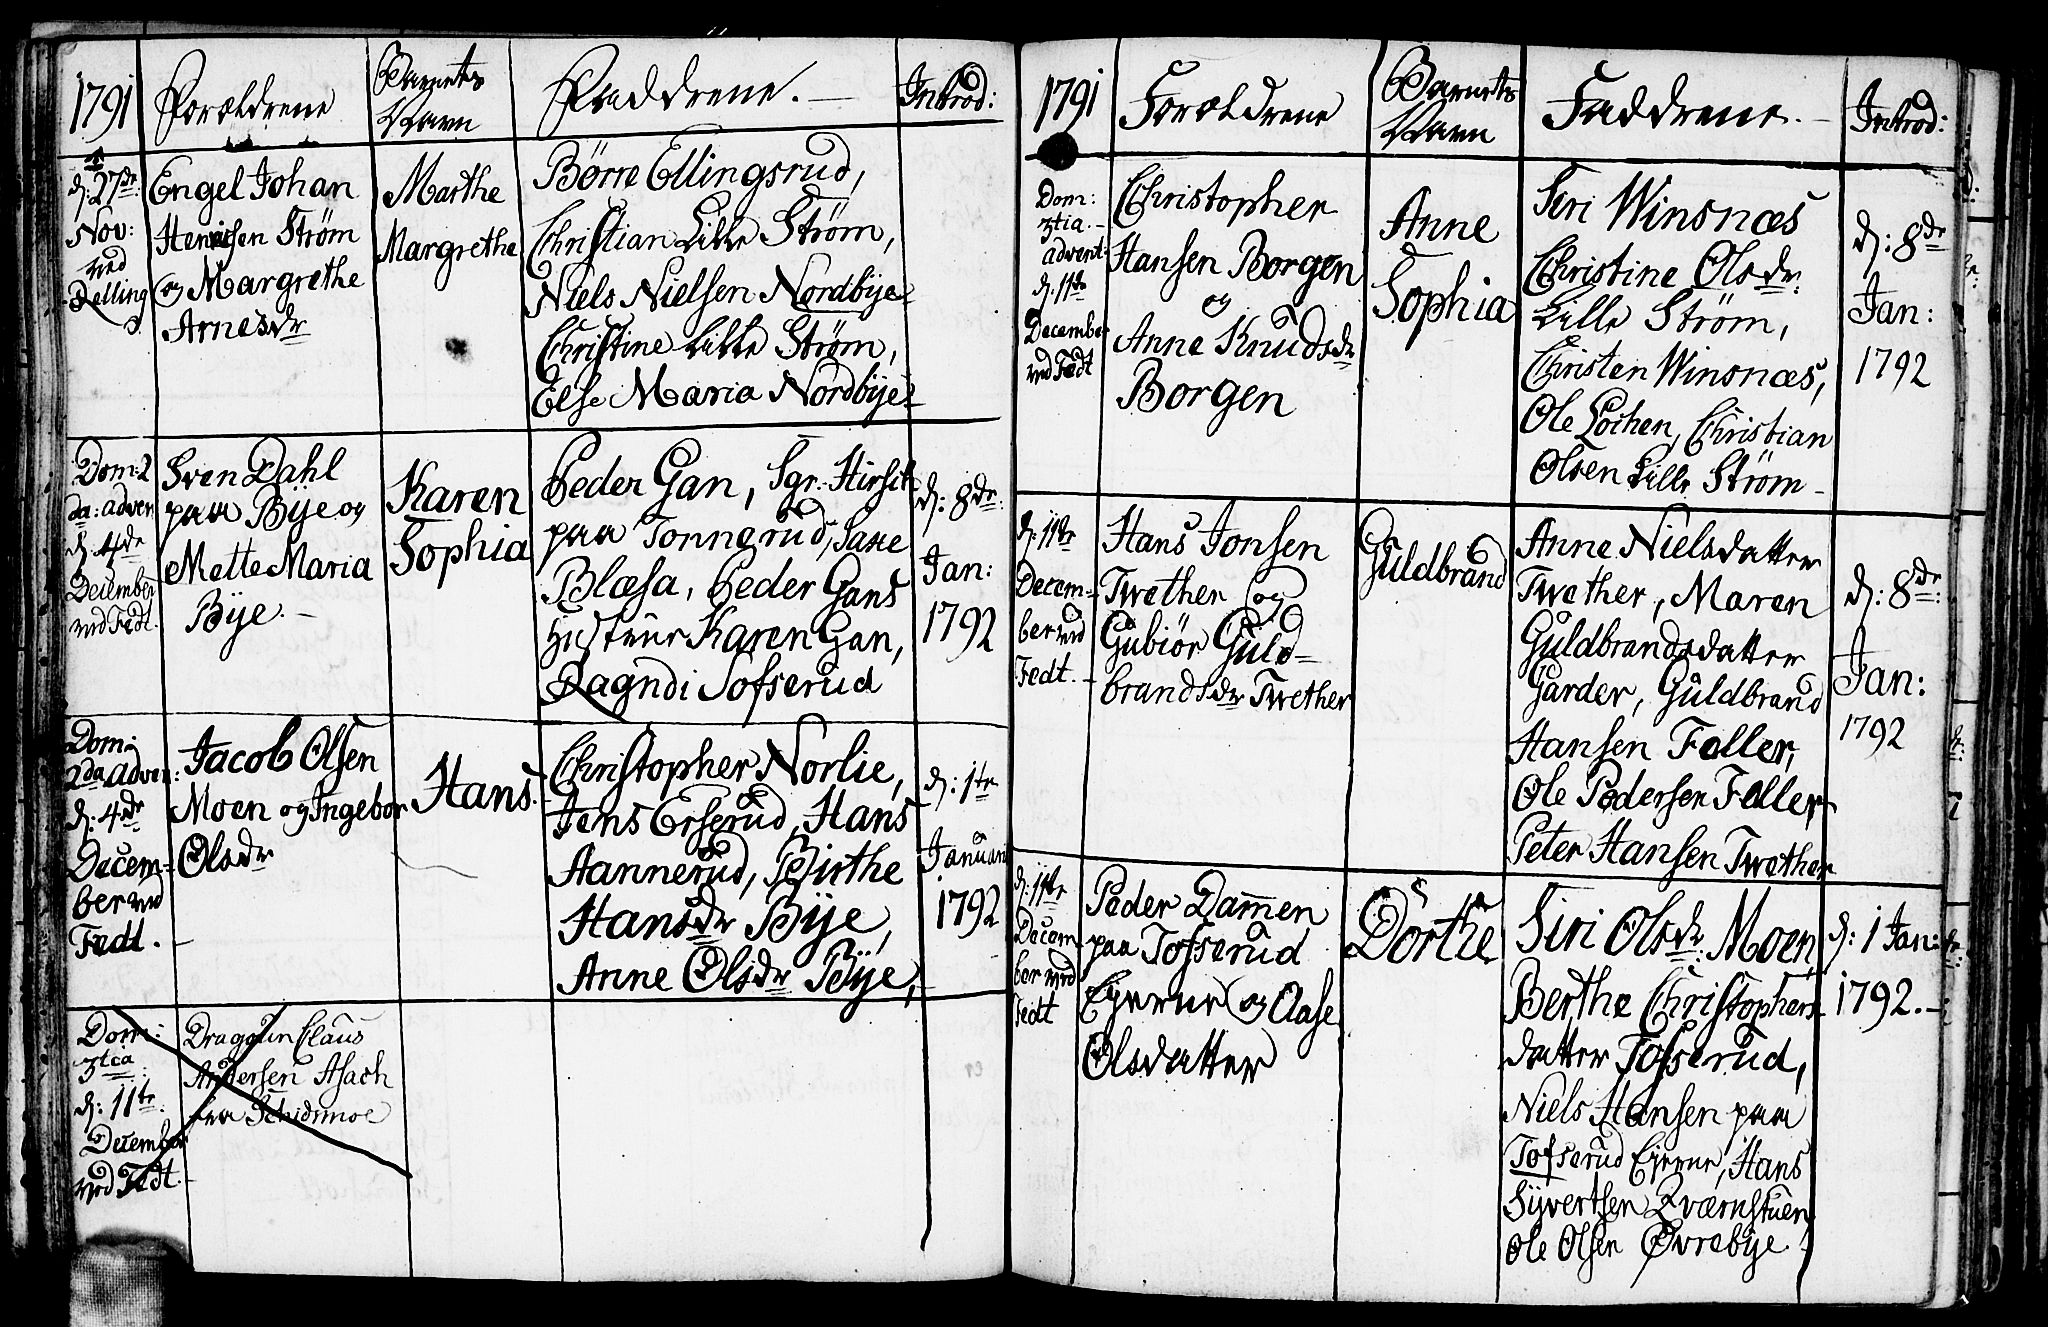 1791
Forældrene
Barnets
Navn
Faddrene.
Introd:
d: 27de
Nov:
ved
Relling
Engel Johan
Henrisen Strøm
og Margrethe
Arnesdr
Marthe
Margrethe
Børre Ellingsrud,
Christian Lille Strøm,
Niels Nielsen Nordbije
Christine Lille Strøm,
Else Maria Nordbije
Dom: 2
da: adven
d: 4de
December
ved Fedt.
Sven Dahl
paa Bije og
Mette Maria
Bije.
Karen
Sophia
Peder Gan, Sgr. Hirsch
paa Tonnerud, Saxe
Blæsa, Peder Gans
Hustrue Karen Gan,
Ragndi Tofserud
d: 8de:
Jan:
1792
Dom:
2da adven:
d: 4de
Decem-
ber ved
Fedt.
Jacob Olsen
Moen og Ingebor
Olsdr
Hans.
Christopher Norlie,
Jens Erserud, Hans
Aannerud, Birthe
Hansdr Bije,
Anne Olsdr Bije,
d: 1te
Januari
1792
Dom:
3tia
d: 11te
December
ved Fedt.
Dragoun Claus
Andersen Asach
fra Schidsmoe
1791
Forældrene
Barnets
Navn
Faddrene.
Introd:
Dom:
3tia.
advent:
d: 11te
December
ved Fedt
Christopher
Hansen Borgen
og
Anne Knudsdr
Borgen
Anne
Sophia
Siri Winsnæs
Christine Olsdr:
Lille Strøm,
Christen Winsnæs,
Ole Lochen, Christian
Olsen Lille Strøm
d: 8de
Jan:
1792
d: 11te
Decem-
ber ved
Fedt.
Hans Jonsen
Twether og
Gubiør Guld-
brandsdr Twether
Guldbrand
Anne Nielsdatter
Twether, Maren
Guldbrandsdatter
Garder, Guldbrand
Hansen Faller,
Ole Pedersen Faller
Peter Hansen Twether
d: 8de:
Jan:
1792
d: 11te
Decem
ber ved
Fedt
Peder Damen
paa Tofserud
Ejerne og Olase
Olsdatter
Dorthe
Siri Olsdr. Moen,
Berthe Christophers
datter Tofserud,
Niels Hansen paa
Tofserud Ejerne, Hans
Sijvertsen Qværnstuen
Ole Olsen Øvrebye.
d: 1 Jan:
1792.